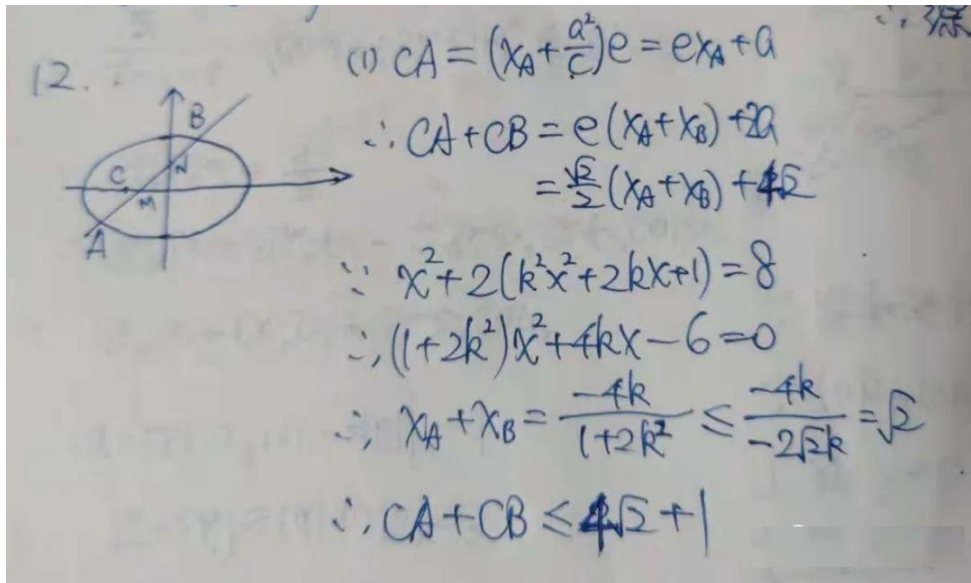 ∴ 
12.
(1) CA = (x_A + a²/c)e = ex_A + a
∴ CA + CB = e(x_A + x_B) + 2a
= √2/2 (x_A + x_B) + 4√2
∵ x² + 2(k²x² + 2kx + 1) = 8
∴ (1 + 2k²)x² + 4kx − 6 = 0
∴ x_A + x_B = −4k/(1 + 2k²) ≤ −4k/(−2√2k) = √2
∴ CA + CB ≤ 4√2 + 1
B
N
C
M
A